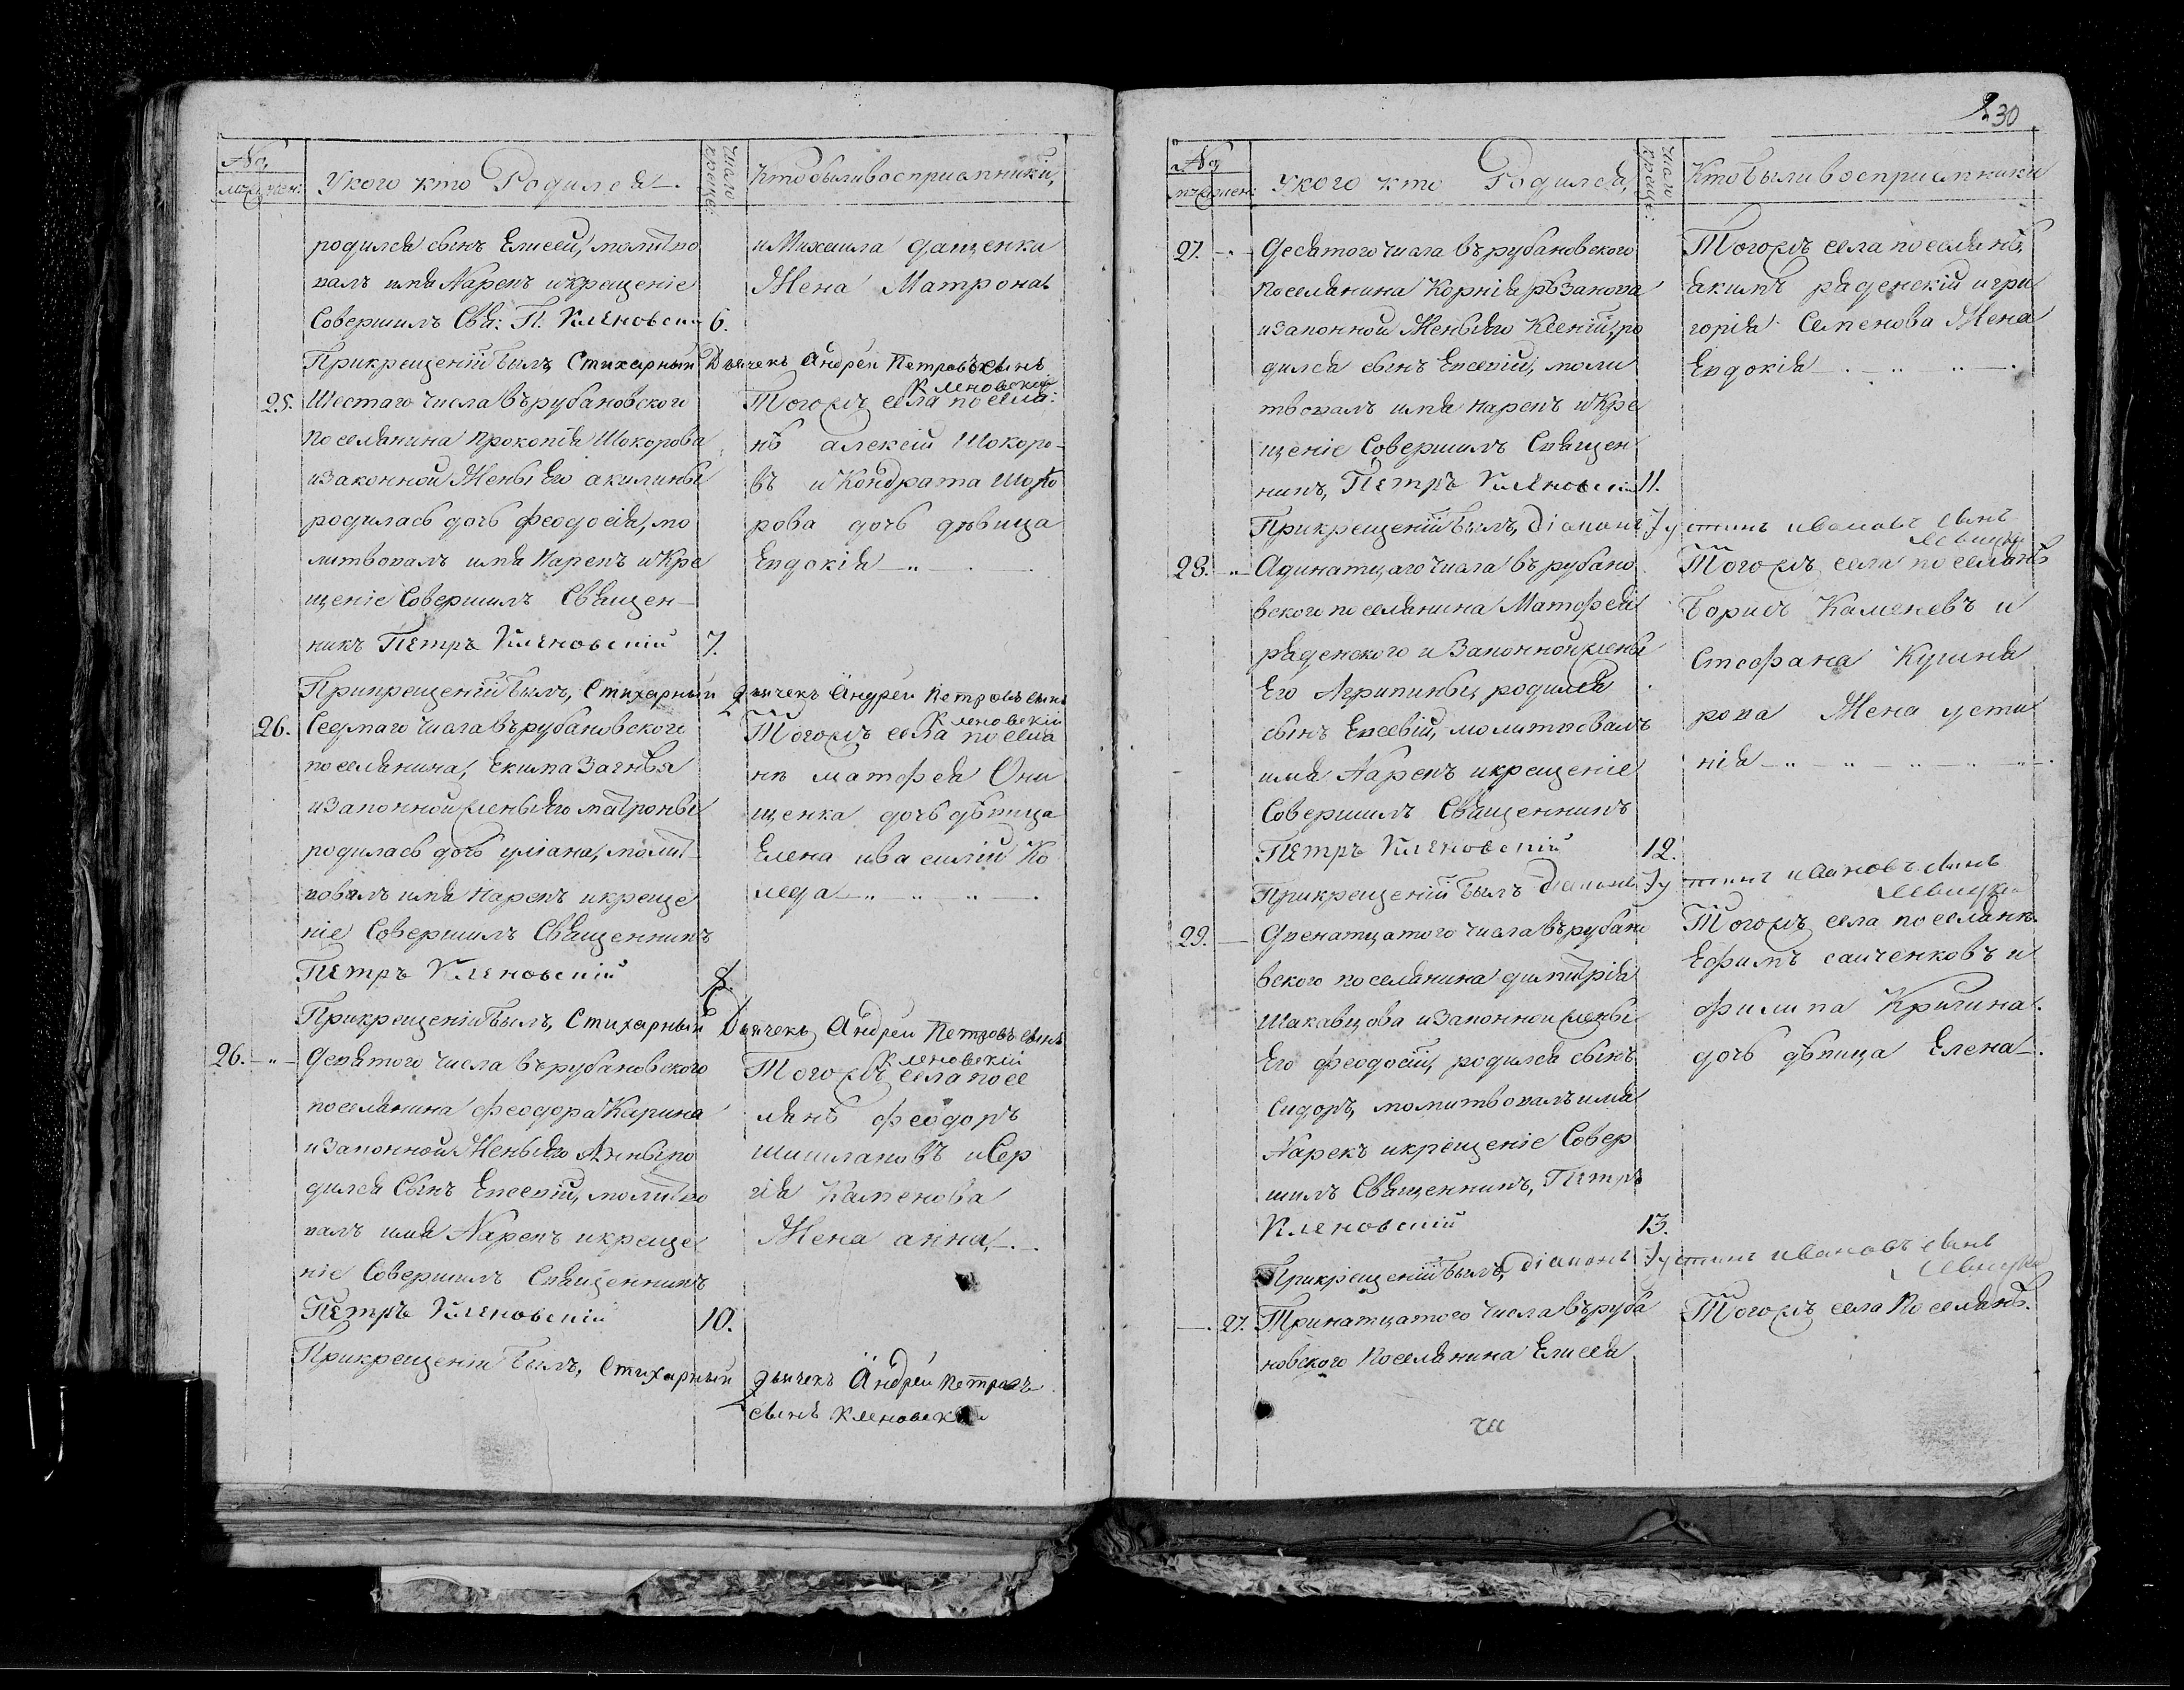 230
№
муж: жен:
У кого кто Родился.
Число креще:
Кто были восприемники,
родился сынъ Елисей, молитво
валъ имя Нарекъ и крещеніе
Совершилъ Свя: П. Кленовски 6.
и Михаила Дащенка
Жена Матрона
При крещеніи былъ, Стихарный Дьячекъ Андрей Петровъ сынъ
Кленовский
25. Шестаго числа въ рубановского
поселянина прокопія Шокорова
и законной Жены Его акилины
родилась дочь феодосія, мо
литвовалъ имя Нарекъ и Кре
щеніе Совершилъ Священ-
никъ Петръ Кленовскій 7.
Тогожъ села поселя:
нъ алексій Шокоро-
въ и Кондрата Шоко
рова дочь дѣвица
Евдокія
При крещеніи былъ, Стихарный дьячекъ Андрей Петровъ сынъ
Кленовскій
26. Седмаго числа въ рубановского
поселянина, Екима
и законной жены Его матроны
родилась дочь уліана, молит
вовалъ имя Нарекъ и креще
ніе Совершилъ Священникъ
Петръ Кленовскій 8.
Тогожъ села поселя
нъ матофея Они
щенка дочь дѣвица
Елена и василій Ко
леда
При крещеніи былъ, Стихарный Дьячекъ Андрей Петровъ сынъ
Кленовскій
26. Девятого числа въ рубановского
поселянина феодора Карина
и законной Жены Его Анны ро
дился Сынъ Евсевій, молитво
валъ имя Нарекъ и креще
ніе Совершилъ Священникъ
Петръ Кленовскій 10.
Тогожъ села посе
лянъ феодоръ
шишлановъ и Сер
гія Каменова
Жена анна
При крещеніи былъ, Стихарный дьячекъ Андрей Петровъ
сынъ Кленовск
№
муж: жен:
У кого кто Родился,
Число креще:
Кто были восприемники
27. Десятого числа въ рубановского
поселянина Корнія рѣзанова
и законной Жены Его Ксеніи, ро
дился сынъ Евсевій, моли
твовалъ имя нарекъ и Кре
щеніе Совершилъ Священ
никъ, Петръ Кленовскій 11.
Тогожъ села поселянъ,
акимъ раденскій и гри
горія Семенова Жена
Евдокія
При крещеніи былъ, Діаконъ Іустинъ ивановъ сынъ
Левицки
28. Адинатцаго числа въ рубано
вского поселянина Матофея
раденского и Законной жены
Его Агрипины, родился
сынъ Евсевій, молитвовалъ
имя Нарекъ и крещеніе
Совершилъ Священникъ
Петръ Кленовскій 12.
Тогожъ села поселянъ
Борисъ Каменевъ и
Стефана Кушни
рова Жена усти
нія
При крещеніи былъ Діаконъ Іустинъ ивановъ сынъ
Левицки
29. Двенатцатого числа въ рубано
вского поселянина димитрія
Шакавцова и Законной жены
Его феодосіи, родился сынъ
Сидоръ, молитвовалъ имя
Нарекъ и крещеніе Совер
шилъ Священникъ, Петръ
Кленовскій 13.
Тогожъ села поселянъ
Ефимъ саиченковъ и
филипа Кригина
дочь дѣвица Елена
При крещеніи былъ, Діаконъ Іустинъ ивановъ сынъ
Левицки
27. Тринатцатого числа въ руба
новского Поселянина Елисея
Тогожъ села Поселянъ